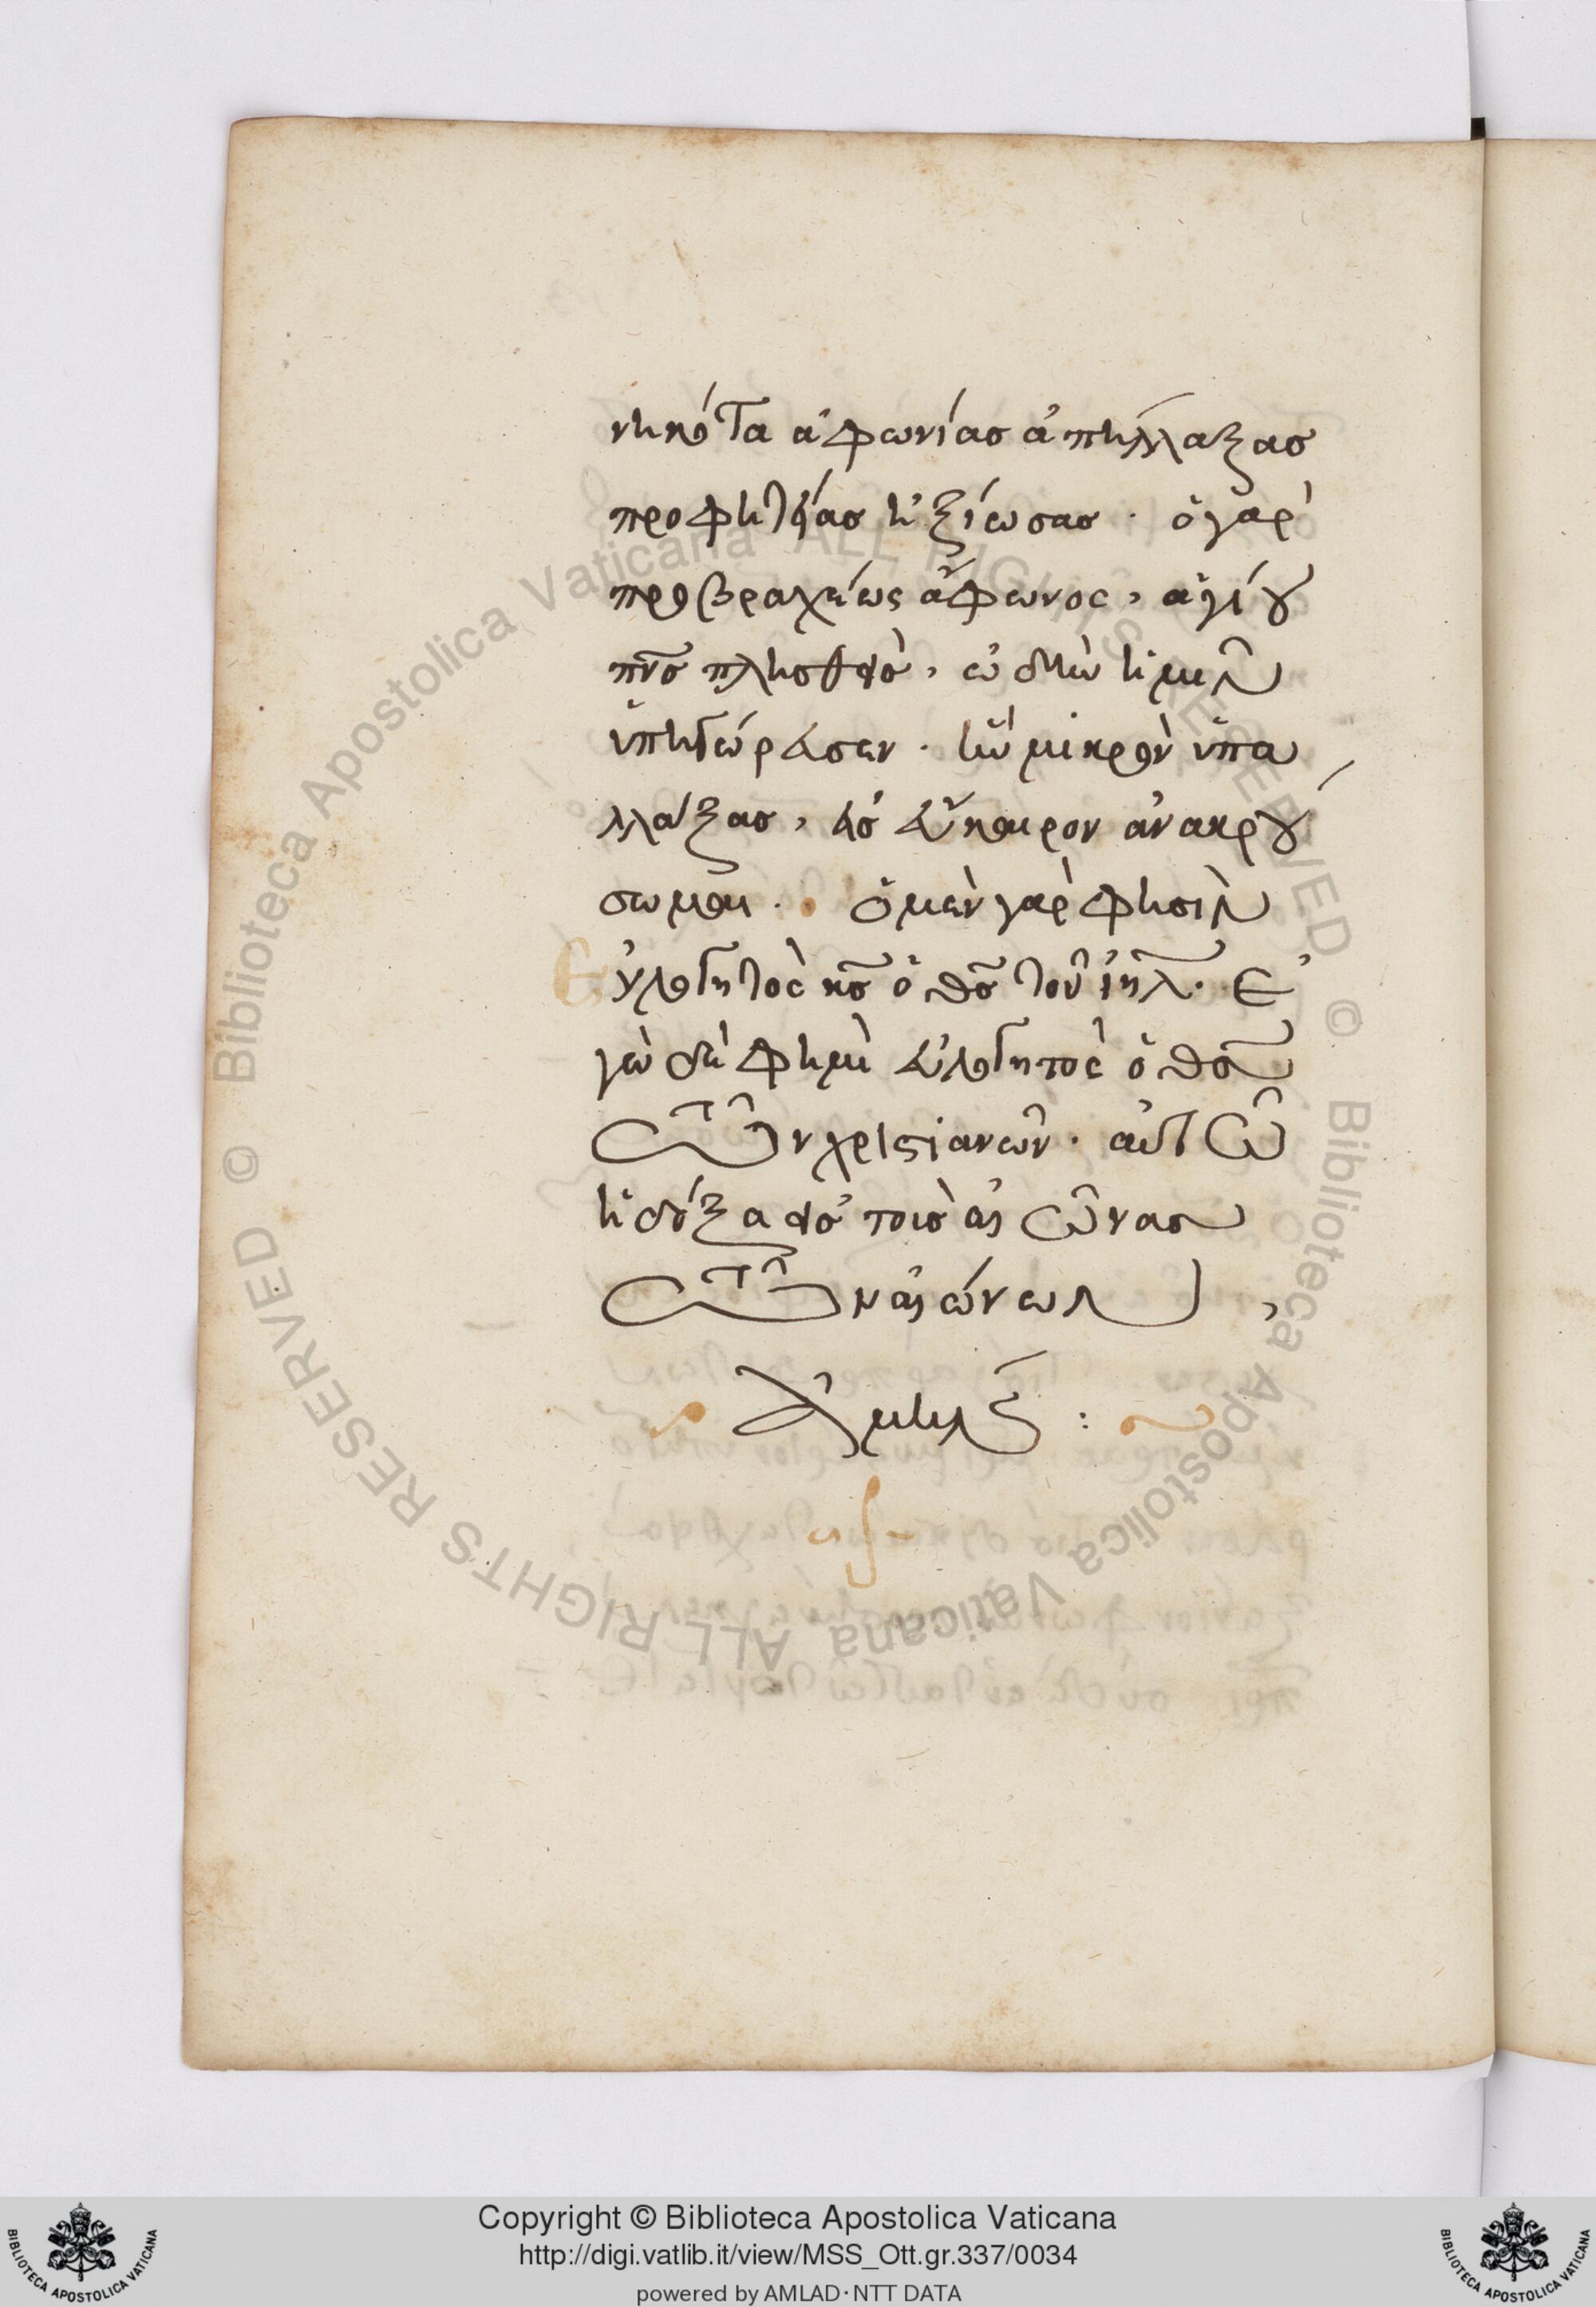 νηκότα ἀφωνίας ἀπήλλαξας
προφητείας ἠξίωσας · ὁ γὰρ
προβραχέως ἄφωνος, ἁγίου
πνς πλησθεὶς, ὠδὴν ἡμῖν
ὑπηγόρευσεν · ἣν μικρὸν ὑπα
λλάξας, εἰς εὔκαιρον ἀνακρού
σωμαι · ὁ μὲν γὰρ φησὶν
Εὐλογητὸς κς ὁ θς τοῦ ἰηλ · Ἐ
γὼ δὲ φημὶ εὐλογητὸς ὁ θς
τῶν χριστιανῶν · αὐτῶ
ἡ δόξα εἰς τοὺς αἰῶνας
τῶν αἰώνων,
Ἀμήν :
Copyright © Biblioteca Apostolica Vaticana
http://digi.vatlib.it/view/MSS_Ott.gr.337/0034
powered by AMLAD·NTT DATA
BIBLIOTECA APOSTOLICA VATICANA
BIBLIOTECA APOSTOLICA VATICANA
© Biblioteca Apostolica Vaticana ALL RIGHTS RESERVED © Biblioteca Apostolica Vaticana ALL RIGHTS RESERVED